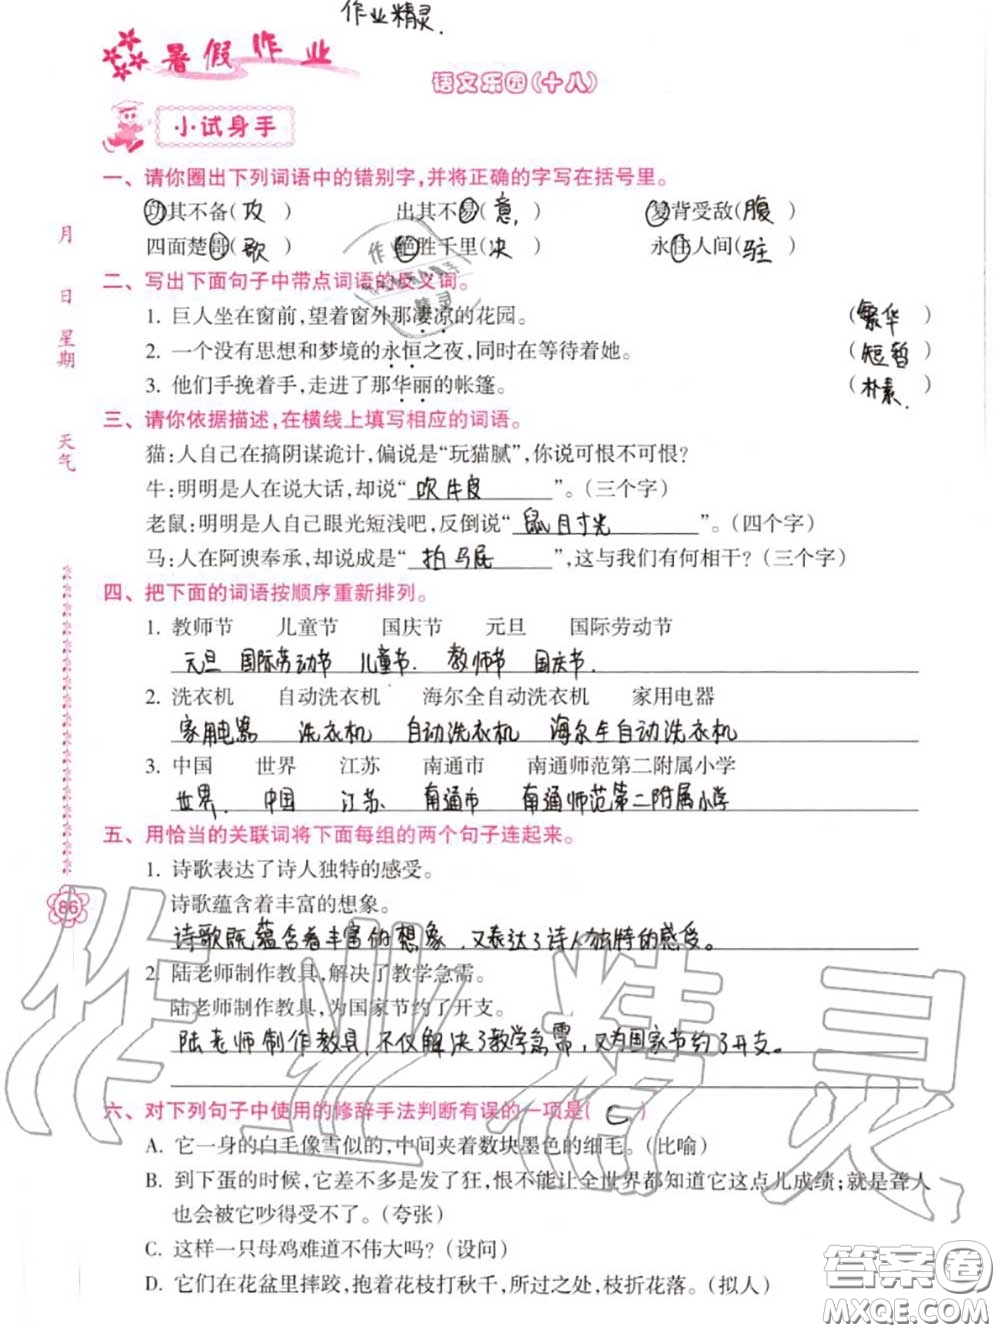 作业精灵.
暑假作业
语文乐园(十八)
小试身手
一、请你圈出下列词语中的错别字,并将正确的字写在括号里。
功其不备(攻) 出其不易(意) 复背受敌(腹)
四面楚哥(歌) 绝胜千里(决) 永住人间(驻)
二、写出下面句子中带点词语的反义词。
1. 巨人坐在窗前,望着窗外那凄凉的花园。 (繁华)
2. 一个没有思想和梦境的永恒之夜,同时在等待着她。 (短暂)
3. 他们手挽着手,走进了那华丽的帐篷。 (朴素.)
三、请你依据描述,在横线上填写相应的词语。
猫:人自己在搞阴谋诡计,偏说是“玩猫腻”,你说可恨不可恨?
牛:明明是人在说大话,却说“ 吹牛皮 ”。(三个字)
老鼠:明明是人自己眼光短浅吧,反倒说“ 鼠目寸光 ”。(四个字)
马:人在阿谀奉承,却说成是“ 拍马屁 ”,这与我们有何相干?(三个字)
四、把下面的词语按顺序重新排列。
1. 教师节 儿童节 国庆节 元旦 国际劳动节
元旦 国际劳动节 儿童节. 教师节 国庆节.
2. 洗衣机 自动洗衣机 海尔全自动洗衣机 家用电器
家用电器 洗衣机 自动洗衣机 海尔全自动洗衣机
3. 中国 世界 江苏 南通市 南通师范第二附属小学
世界. 中国 江苏 南通市 南通师范第二附属小学
五、用恰当的关联词将下面每组的两个句子连起来。
1. 诗歌表达了诗人独特的感受。
诗歌蕴含着丰富的想象。
诗歌既蕴含着丰富的想象,又表达了诗人独特的感受。
2. 陆老师制作教具,解决了教学急需。
陆老师制作教具,为国家节约了开支。
陆老师制作教具,不仅解决了教学急需,又为国家节约了开支。
六、对下列句子中使用的修辞手法判断有误的一项是( C )
A. 它一身的白毛像雪似的,中间夹着数块墨色的细毛。(比喻)
B. 到下蛋的时候,它差不多是发了狂,恨不能让全世界都知道它这点儿成绩;就是聋人
也会被它吵得受不了。(夸张)
C. 这样一只母鸡难道不伟大吗?(设问)
D. 它们在花盆里摔跤,抱着花枝打秋千,所过之处,枝折花落。(拟人)
月
日
星期
天气
86
作业精灵
答案圈
MXQE.COM